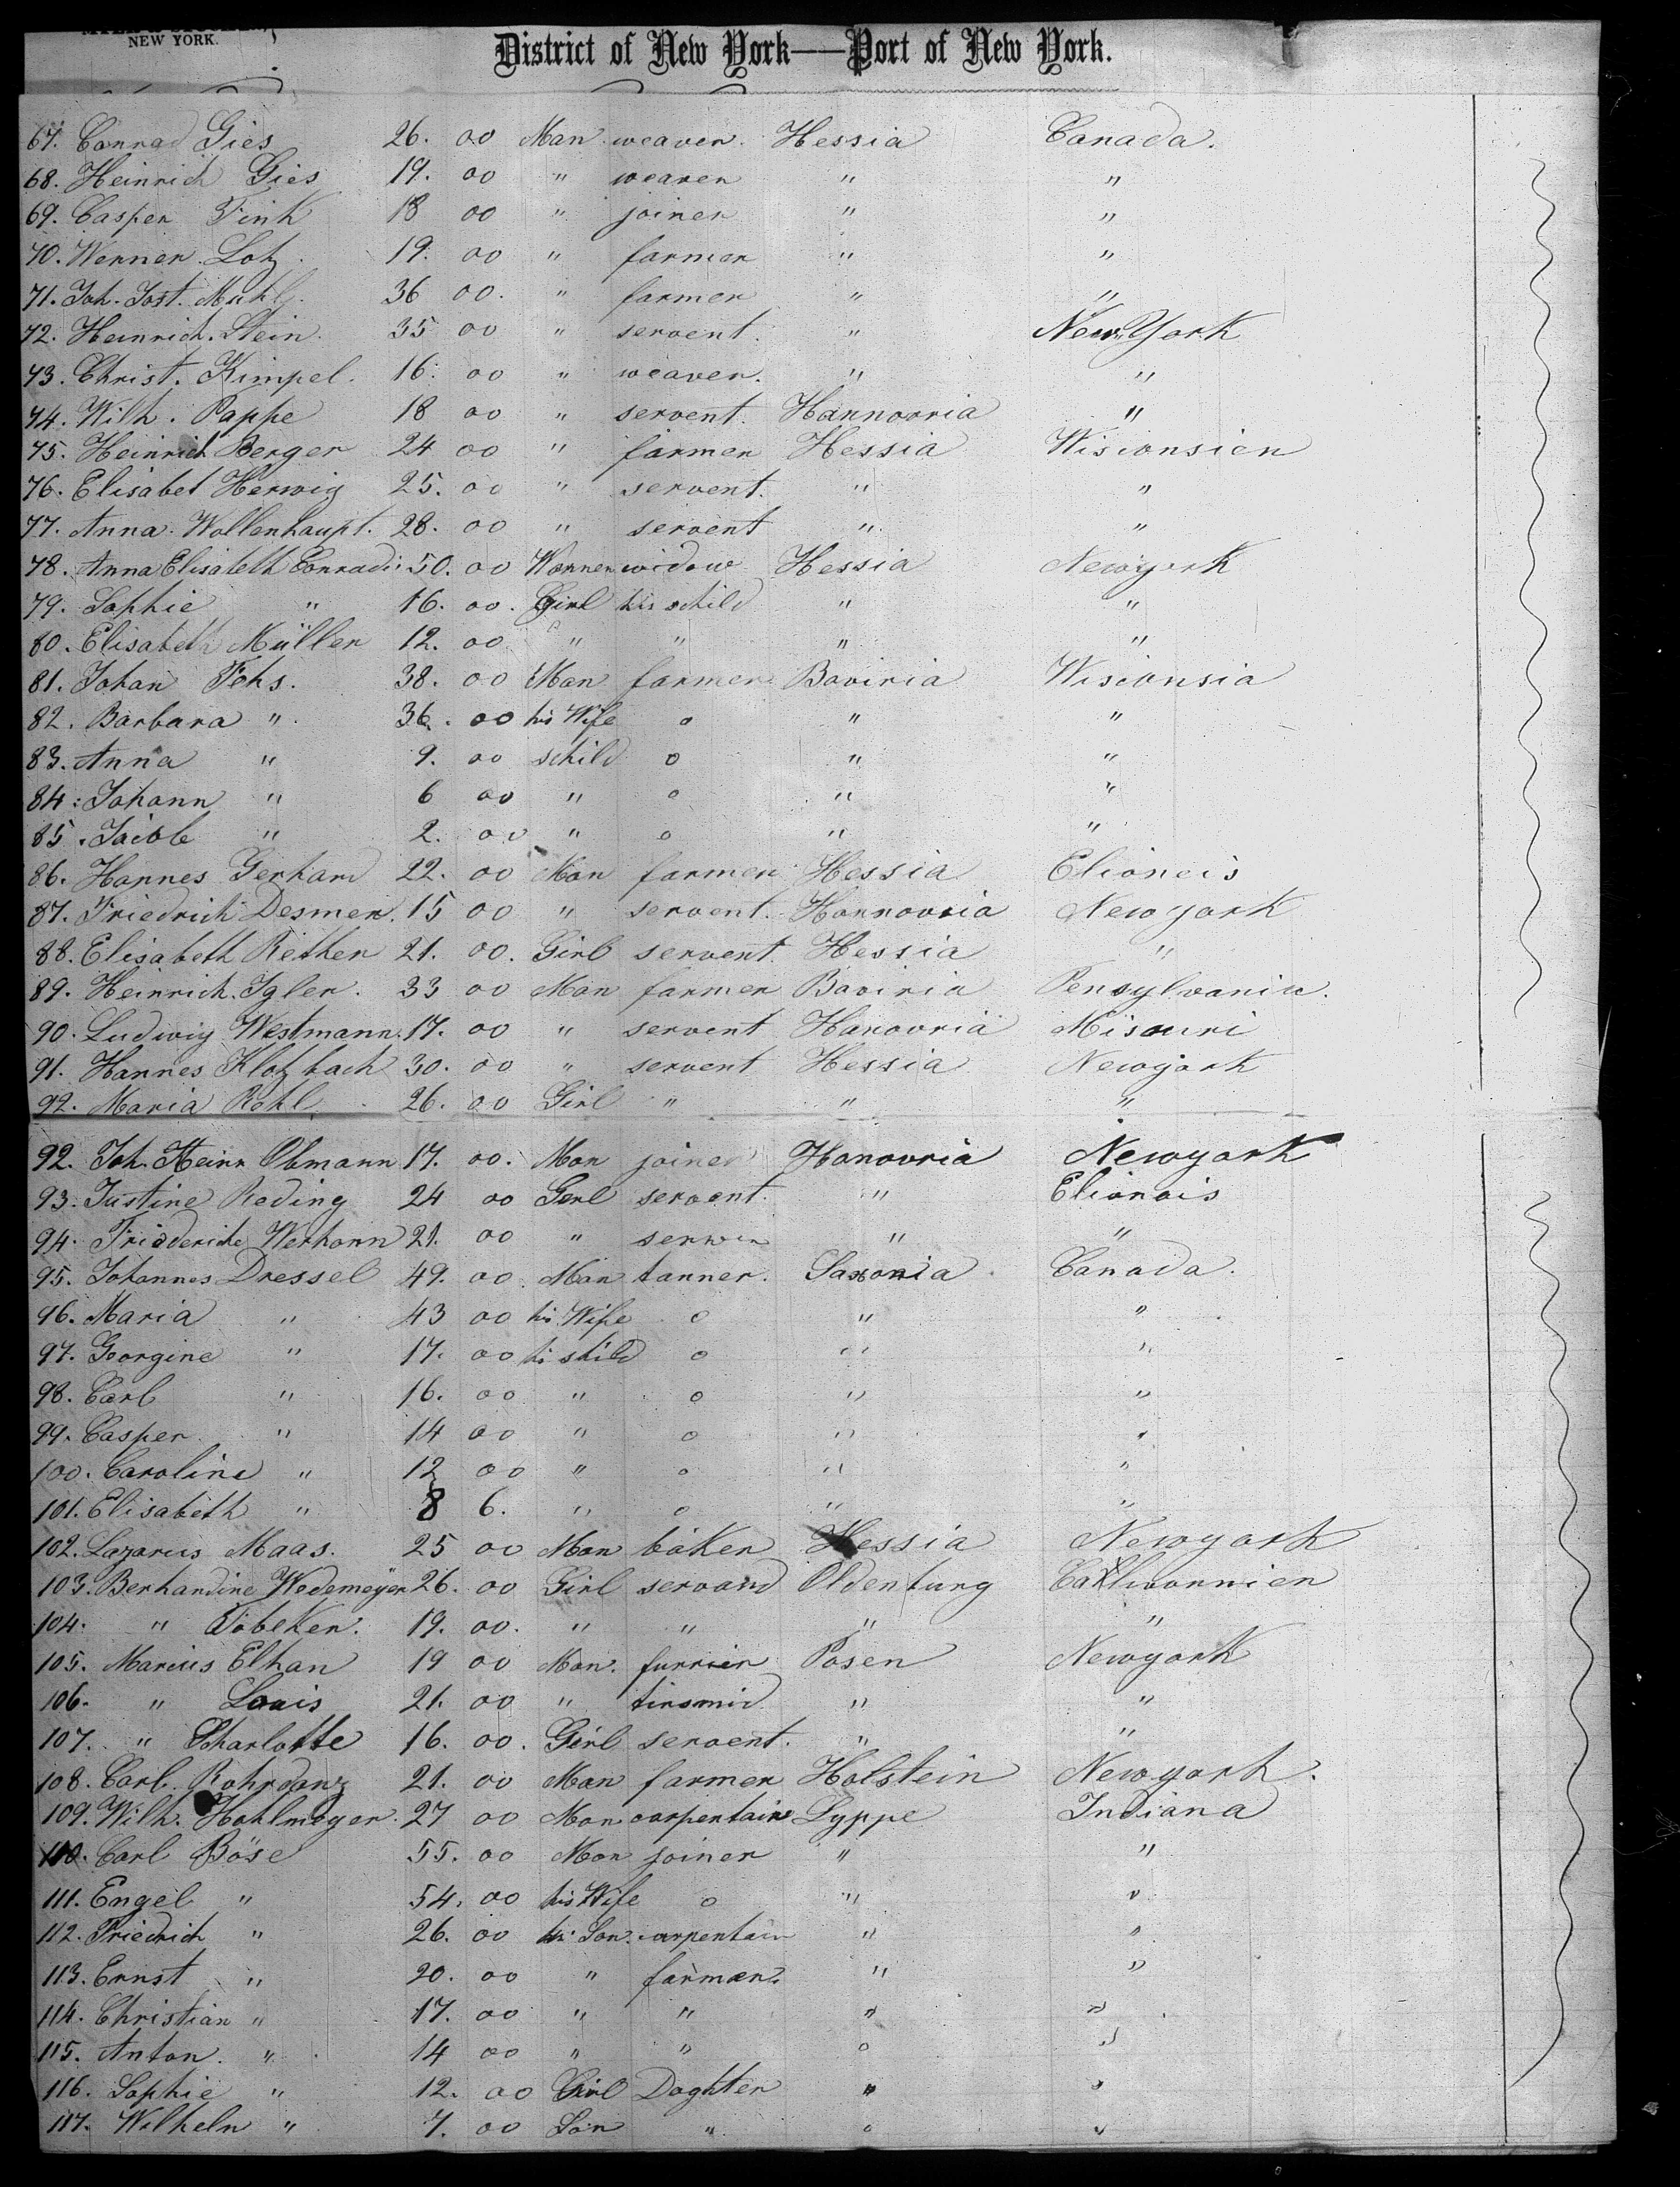 NEW YORK.
District of New York—Port of New York.
67. Conrad Gies 26. 00 Man weaver. Hessia Canada.
68. Heinrich Gies 19. 00 " weaver " "
69. Casper Fink 18 00 " joiner " "
70. Werner Lotz 19. 00 " farmer " "
71. Joh. Jost. Muhl 36 00. " farmer " "
72. Heinrich. Stein. 35 00 " servent. " New York
73. Christ. Kimpel. 16. 00 " weaver. " "
74. Wilh. Pappe 18 00 " servent. Hannovria "
75. Heinrich Berger 24 00 " farmer Hessia Wisconsien
76. Elisabet Herwig 25. 00 " servent. " "
77. Anna Wollenhaupt. 28. 00 " servent " "
78. Anna Elisabeth Conradi 50. 00 Wonnen widow Hessia Newyork
79. Sophie " 16. 00. Girl his schild " "
80. Elisabeth Müller 12. 00 " " " "
81. Johan Fehs. 38. 00 Man farmer Baviria Wisconsia
82. Barbara " 36. 00 his Wife o " "
83. Anna " 9. 00 schild o " "
84. Johann " 6 00 " o " "
85. Jacob " 2. 00 " o " "
86. Hannes Gerhard 22. 00 Man farmer Hessia Elioneis
87. Friedrich Desmer. 15 00 " servent. Hannovria Newyork
88. Elisabeth Rether 21. 00. Girl servent Hessia "
89. Heinrich. Igler. 33 00 Man farmer Baviria Pensylwania.
90. Ludwig Westmann. 17. 00 " servent Hanovria Misouri
91. Hannes Klotzbach 30. 00 " servent Hessia Newyork
92. Maria Rohl 26. 00 Girl " " "
92. Joh. Heinr Obmann 17. 00. Man joiner Hanovria Newyork
93. Justine Reding 24 00 Gerl servent. " Elionois
94. Friederiche Werhonn 21. 00 " " "
95. Johannes Dressel 49. 00. Man tanner. Saxonia. Canada.
96. Maria " 43 00 his Wife o " "
97. Georgine " 17. 00 hi schild o " "
98. Carl " 16. 00 " o " "
99. Casper " 14 00 " o " "
100. Caroline " 12 00 " o " "
101. Elisabeth " 8 6. " o " "
102. Lazarus Maas. 25 00 Man baker Hessia Newyork
103. Berhandine Wedemeÿer 26. 00 Girl servand Oldenburg
104. " Tobeken. 19. 00. " " " "
105. Marcus Elhan 19 00 Man. furrier Posen Newyork
106. " Louis 21. 00 " tinsmid " "
107. " Charlotte 16. 00. Girl servent. " "
108. Carl. Rohrdanz 21. 00 Man farmer Holstein Newyork.
109. Wilh. Hohlmeyer. 27 00 Man carpentaire Lyppe Indiana
110. Carl Böse 55. 00 Man joiner " "
111. Engel " 54. 00 his Wife o " "
112. Friedrich " 26. 00 hi Son. carpentair " "
113. Ernst " 20. 00 " farmer. " "
114. Christian " 17. 00 " " " "
115. Anton. " 14 00 " " o "
116. Sophie " 12. 00 Girl Doghter " "
117. Wilheln " 7. 00 Son " " "